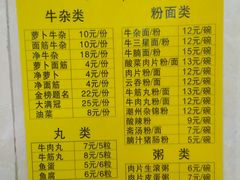 牛杂类
萝卜牛杂 10元/份
面筋牛杂 10元/份
净牛杂 18元/份
净萝卜 10元/份
萝卜面筋 10元/份
金榜题名 22元/份
大满冠 25元/份
油菜 8元/份
丸类
牛肉丸 7元/5粒
牛筋丸 8元/5粒
鱼蛋 5元/6粒
鱼腐 5元/6粒
粉面类
牛杂面/粉 12元/碗
牛三星面/粉 12元/碗
牛腩面/粉 15元/碗
酸菜肉片面/粉 13元/碗
肉片面/粉 12元/碗
云吞面/粉 12元/碗
牛筋丸面/粉 12元/碗
潮州杂锦粉 12元/碗
酸辣粉 9元/碗
斋汤粉/面 7元/碗
腩汁猪肠粉 7元/碗
粥类
肉片生滚粥 6元/碗
肉片皮蛋粥 7元/碗